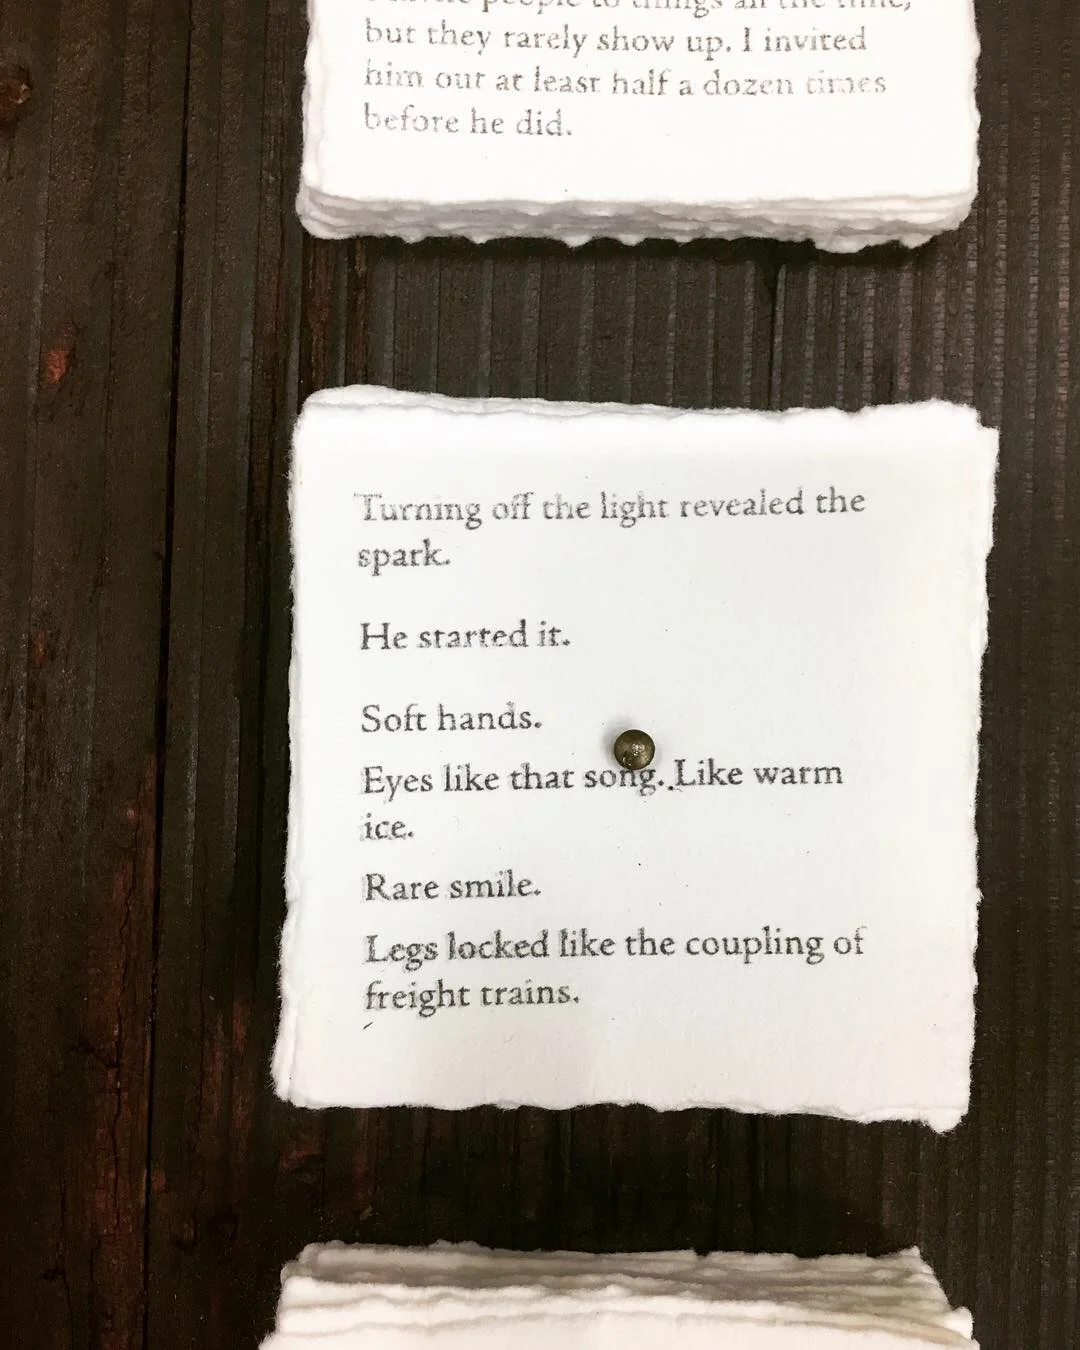 people to things all the time,
but they rarely show up. I invited
him out at least half a dozen times
before he did.
Turning off the light revealed the
spark.
He started it.
Soft hands.
Eyes like that song. Like warm
ice.
Rare smile.
Legs locked like the coupling of
freight trains.